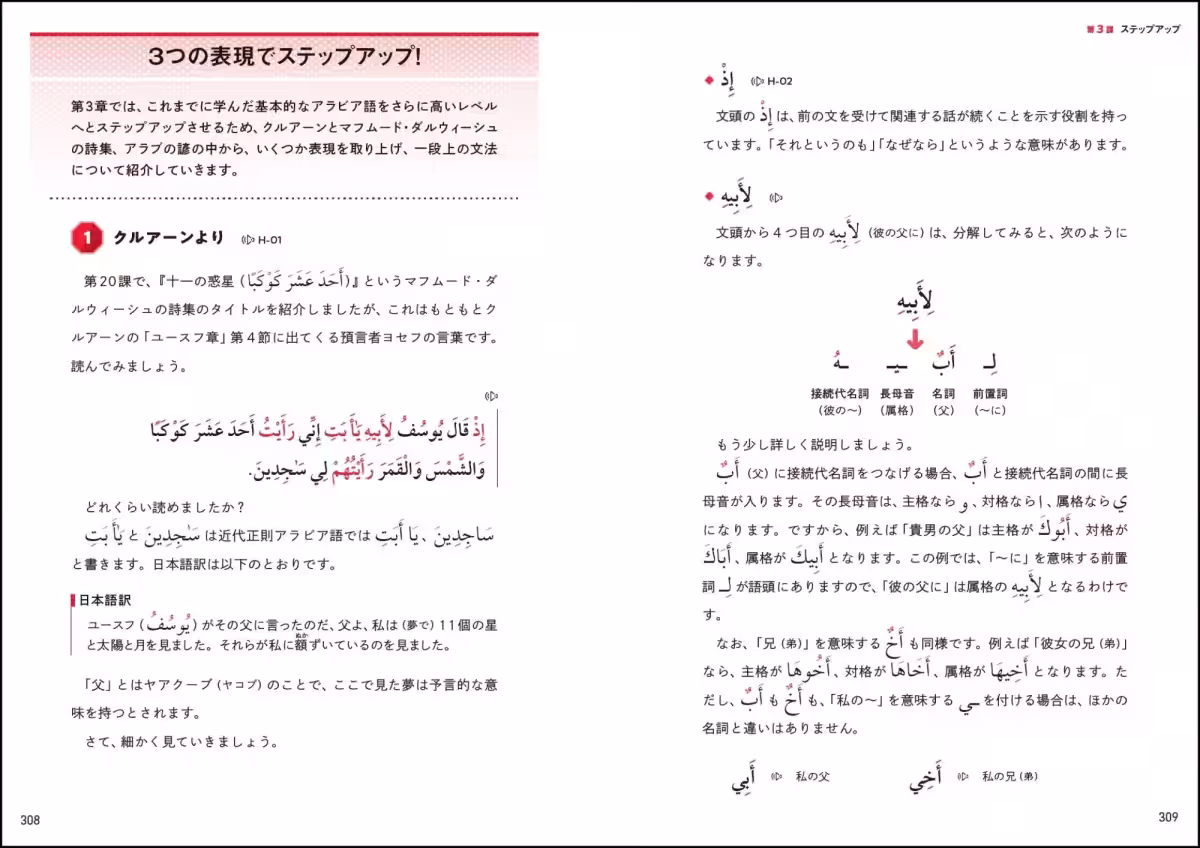 3つの表現でステップアップ!
第3章では、これまでに学んだ基本的なアラビア語をさらに高いレベル
へとステップアップさせるため、クルアーンとマフムード・ダルウィーシュ
の詩集、アラブの諺の中から、いくつか表現を取り上げ、一段上の文法
について紹介していきます。
1 クルアーンより H-01
第20課で、『十一の惑星（أَحَدَ عَشَرَ كَوْكَبًا）』というマフムード・ダ
ルウィーシュの詩集のタイトルを紹介しましたが、これはもともとク
ルアーンの「ユースフ章」第4節に出てくる預言者ヨセフの言葉です。
読んでみましょう。
إِذْ قَالَ يُوسُفُ لِأَبِيهِ يَٰأَبَتِ إِنِّي رَأَيْتُ أَحَدَ عَشَرَ كَوْكَبًا
وَالشَّمْسَ وَالْقَمَرَ رَأَيْتُهُمْ لِي سَٰجِدِينَ.
どれくらい読めましたか？
يَٰأَبَتِ と سَٰجِدِينَ は近代正則アラビア語では يَا أَبَتِ、سَاجِدِينَ
と書きます。日本語訳は以下のとおりです。
日本語訳
ユースフ（يُوسُفُ）がその父に言ったのだ、父よ、私は（夢で）11個の星
と太陽と月を見ました。それらが私に額ぬかずいているのを見ました。
「父」とはヤアクーブ（ヤコブ）のことで、ここで見た夢は予言的な意
味を持つとされます。
さて、細かく見ていきましょう。
308
第3課 ステップアップ
إِذْ H-02
文頭の إِذْ は、前の文を受けて関連する話が続くことを示す役割を持っ
ています。「それというのも」「なぜなら」というような意味があります。
لِأَبِيهِ
文頭から4つ目の لِأَبِيهِ（彼の父に）は、分解してみると、次のように
なります。
لِأَبِيهِ
ـهُ ـيـ أَبٌ لِـ
接続代名詞 長母音 名詞 前置詞
（彼の〜） （属格） （父） （〜に）
もう少し詳しく説明しましょう。
أَبٌ（父）に接続代名詞をつなげる場合、أَبٌ と接続代名詞の間に長
母音が入ります。その長母音は、主格なら و、対格なら ا、属格なら ي
になります。ですから、例えば「貴男の父」は主格が أَبُوكَ、対格が
أَبَاكَ、属格が أَبِيكَ となります。この例では、「〜に」を意味する前置
詞 لِـ が語頭にありますので、「彼の父に」は属格の لِأَبِيهِ となるわけで
す。
なお、「兄（弟）」を意味する أَخٌ も同様です。例えば「彼女の兄（弟）」
なら、主格が أَخُوهَا、対格が أَخَاهَا、属格が أَخِيهَا となります。た
だし、أَبٌ も أَخٌ も、「私の〜」を意味する ـي を付ける場合は、ほかの
名詞と違いはありません。
أَبِي 私の父 أَخِي 私の兄（弟）
309